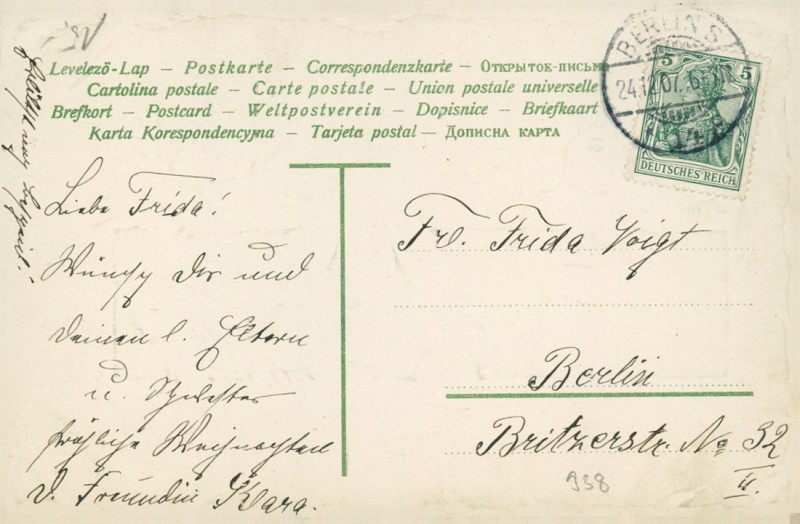 Levelező-Lap – Postkarte – Correspondenzkarte – Открытое-письмо
Cartolina postale – Carte postale – Union postale universelle
Brefkort – Postcard – Weltpostverein – Dopisnice – Briefkaart
Karta Korespondencyjna – Tarjeta postal – Дописна карта
BERLIN S
24.12.07.
14
5 5
DEUTSCHES REICH
Liebe Frida!
Wünsche Dir und
deinen l. Eltern
u. Schwester
fröhliche Weihnachten
D. Freundin Klara.
Frl. Frida Voigt
Berlin
Britzerstr. No 32
II.
958